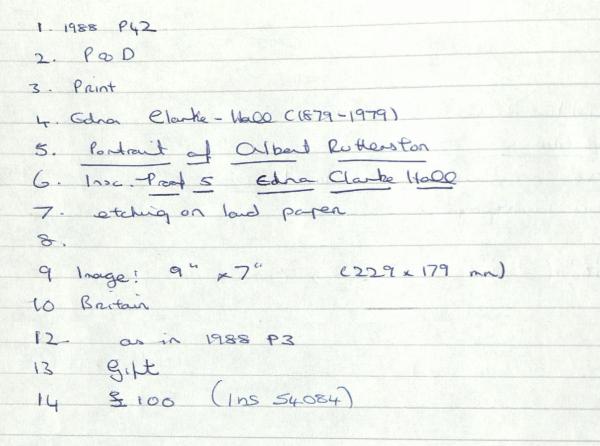 1. 1988 P42
2. P∞D
3. Print
4. Edna Clarke-Hall (1879-1979)
5. Portrait of Albert Rutherston
6. Insc. Proof 5 Edna Clarke Hall
7. etching on laid paper
8.
9 Image: 9" x 7" (229 x 179 mm)
10 Britain
12 as in 1988 P3
13 gift
14 £100 (Ins 54084)